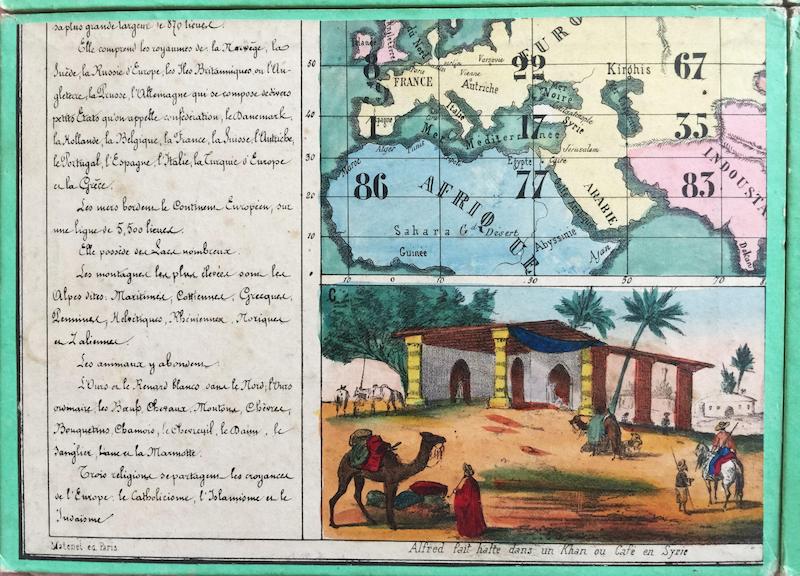 sa plus grande largeur de 870 lieues.
Elle comprend les royaumes de: la Norwège, la
Suède, la Russie d'Europe, les Iles Britanniques, ou l'An-
gleterre, la Prusse, l'Allemagne qui se compose de divers
petits Etats qu'on appelle confédération, le Danemark,
la Hollande, la Belgique, la France, la Suisse, l'Autriche,
le Portugal, l'Espagne, l'Italie, la Turquie d'Europe
et la Grèce.
Les mers bordent le Continent Européen, sur
une ligne de 5,500 lieues.
Elle possède des Lacs nombreux.
Les montagnes les plus élevées sont les
Alpes dites: Maritimes, Cottiennes, Grecques,
Pennines, Helvétiques, Rhéniennes, Noriques
et Italiennes.
Les animaux y abondent.
L'Ours et le Renard blancs dans le Nord, l'Ours
ordinaire, les Bœufs, Chevaux, Moutons, Chèvres,
Bouquetins Chamois, le Chevreuil, le Daim, le
Sanglier, l'ane et la Marmotte.
Trois religions se partagent les croyances
de l'Europe: le Catholicisme, l'Islamisme et le
Judaïsme
Matenet ed. Paris
EURO
50
8
22
Kirghis
67
Paris
FRANCE
Vienne
Varsovie
Autriche
Mer
Noire
40
1
Italie
17
Syrie
35
Mer Méditerranée
Jerusalem
Alger
Tunis
30
Maroc
Egypte
Caire
INDOUSTA
86
77
83
AFRIQUE
ARABIE
20
Sahara Gd Desert
Abyssinie
10
Guinée
Ajan
Dekan
0
10
0
10
30
50
70
C.
Alfred fait halte dans un Khan ou Café en Syrie